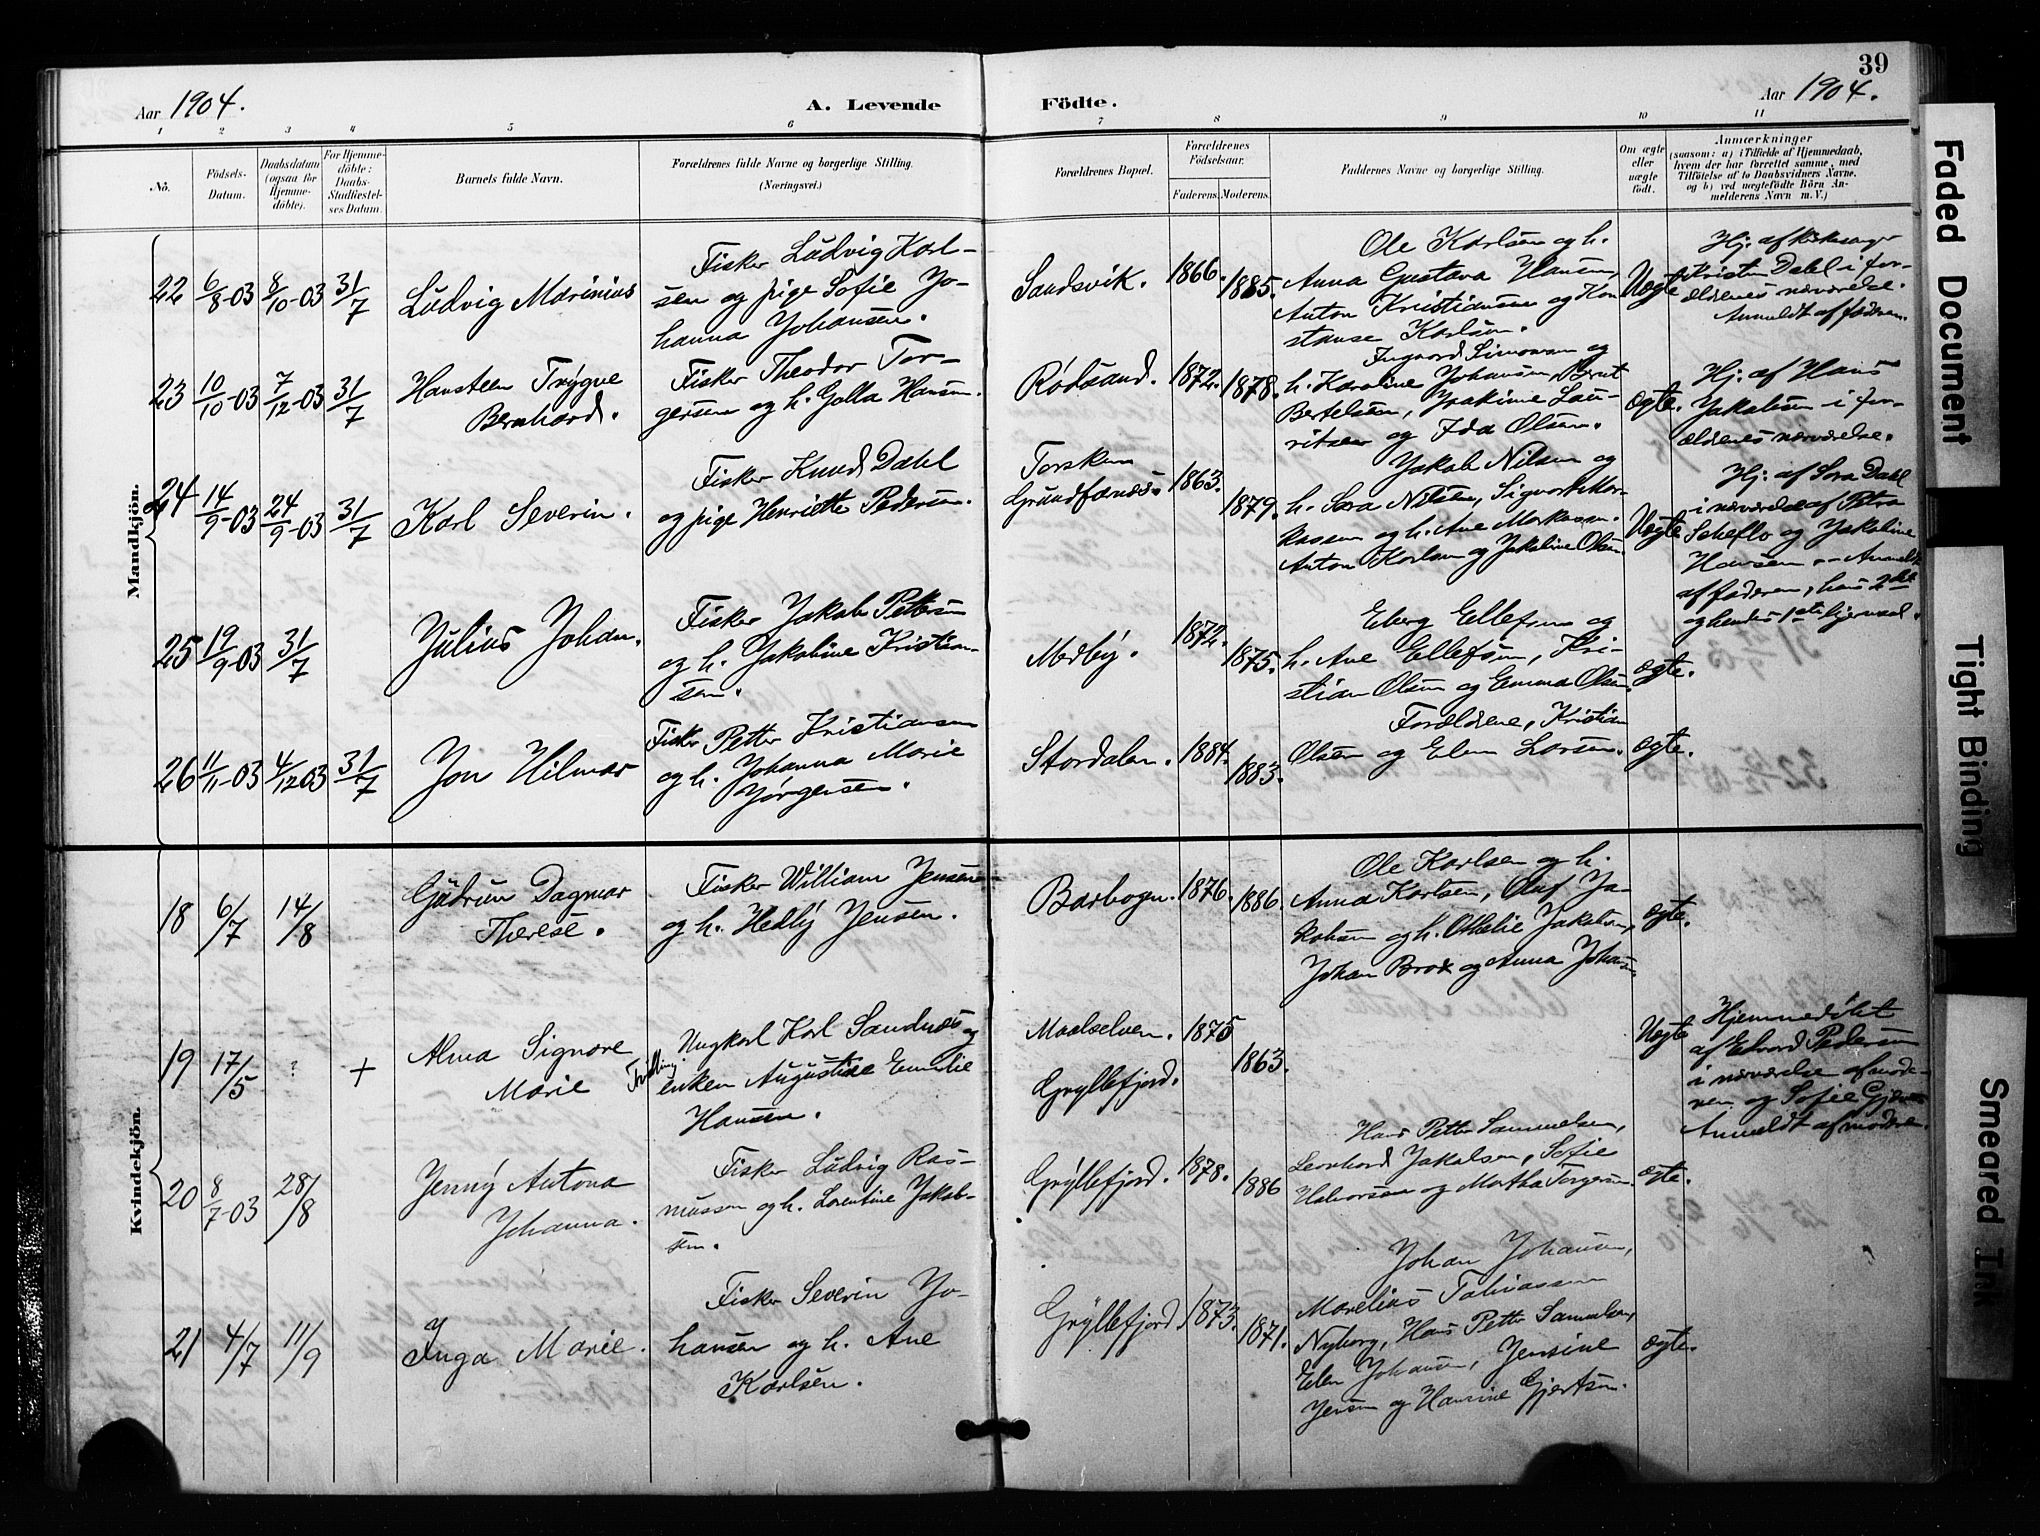 39
Aar 1904.
A. Levende
Födte.
Aar 1904.
1 2 3 4 5 6 7 8 9 10 11
Nô.
Födsels-
Datum.
Daabsdatum
(ogsaa for
Hjemme-
döbte).
For Hjemme-
döbte:
Daabs-
Stadfæstel-
ses Datum.
Barnets fulde Navn.
Forældrenes fulde Navne og borgerlige Stilling.
(Næringsvei.)
Forældrenes Bopæl.
Forældrenes
Födselsaar.
Faderens.
Moderens.
Faddernes Navne og borgerlige Stilling.
Om ægte
eller
uægte
födt.
Anmærkninger
(saasom: a) i Tilfælde af Hjemmedaab,
hvem der har forrettet samme, med
Tilföielse af to Daabsvidners Navne,
og b) ved uægtefödte Börn An-
melderens Navn m. V.)
Mandkjön.
22 6/8-03 8/10-03 31/7
Ludvig Marinius
Fisker Ludvig Karl-
sen og pige Sofie Jo-
hanna Johansen.
Sandsvik.
1866.
1885.
Ole Karlsen og h.
Anna Gustava Hansen,
Anton Kristiansen og Kon
stanse Karlsen.
Uægte
Hj. af kirkesanger
Kristen Dahl i for-
ældrenes nærværelse.
Anmeldt af faderen.
23 10/10-03 7/12-03 31/7
Hansteen Trygve
Bernhard.
Fisker Theodor Tor-
gersen og h. Golla Hansen.
Rødsand.
1872.
1878.
Ingvard Simonsen og
h. Karoline Johansen, Bernt
Bertelsen, Joakime Lau-
ritsen og Ida Olsen.
ægte.
Hj. af Hans
Jakobsen i for-
ældrenes nærværelse.
24 14/9-03 24/9-03 31/7
Karl Severin.
Fisker Knud Dahl
og pige Henriette Pedersen.
Torsken
Grundfarnæs.
1863.
1879.
Jakob Nilsen og
h. Sara Nilsen, Sigvart Mar-
kussen og h. Ane Markussen.
Anton Karlsen og Jakobine Olsen
Uægte
Hj. af Sara Dahl
i nærværelse af Petra
Scheflo og Jakobine
Hansen. - Anmeldt
af faderen, hans 2det
og hendes 1ste leiermaal.
25 19/9-03 31/7
Julius Johan.
Fisker Jakob Pettersen
og h. Jakobine Kristian-
sen.
Medby.
1872.
1875.
Eberg Ellefsen og
h. Ane Ellefsen, Kri-
stian Olsen og Emma Olsen.
ægte.
26 11/11-03 4/12-03 31/7
Jon Hilmar
Fisker Petter Kristiansen
og h. Johanna Marie
Jørgensen.
Stordalen.
1884.
1883.
Forældrene, Kristian
Olsen og Elen Larsen.
ægte.
Kvindekjön.
18 6/7 14/8
Gudrun Dagmar
Therese.
Fisker William Jensen
og h. Hedly Jensen.
Barbogen.
1876.
1886.
Ole Karlsen og h.
Anna Karlsen, Oluf Ja-
kobsen og h. Othelie Jakobsen,
Johan Brox og Anna Johansen
ægte.
19 17/5 ? +
Alma Signore
Marie
Tvilling
Ungkarl Karl Sandnæs og
enken Augustine Emilie
Hansen.
Maalselven.
Gryllefjord.
1875
1863.
Uægte
Hjemmedöbt
af Edvard Pedersen
i nærværelse af mode-
ren og Sofie
Anmeldt af moderen.
20 8/7-03 28/8
Jenny Antona
Johanna.
Fisker Ludvig Ras-
mussen og h. Lorentine Jakob-
sen.
Gryllefjord.
1878.
1886
Hans Petter Sammelsen,
Leonhard Jakobsen, Sofie
Halvorsen og Martha Torgersen.
ægte.
21 4/7 11/9
Inga Marie.
Fisker Severin Jo-
hansen og h. Ane
Karlsen.
Gryllefjord.
1873.
1871.
Johan Johansen,
Marelius Tobiassen
Nyborg, Hans Petter Sammelsen,
Elen Johansen, Jensine
Jensen og Hansine Gjertsen.
ægte.
Faded Document
Tight Binding
Smeared Ink